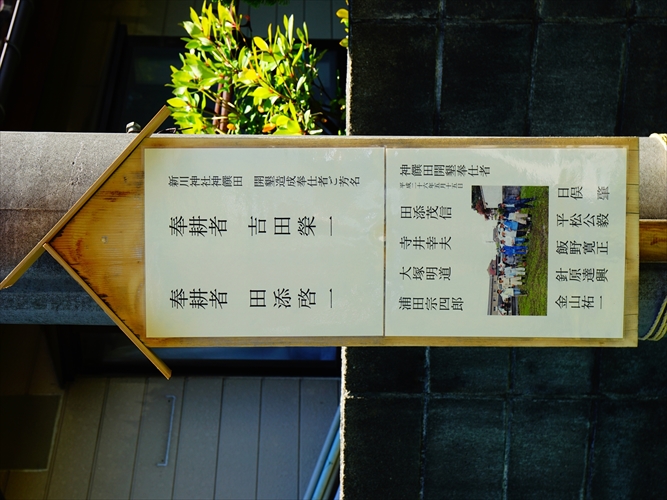 新川神社神饌田 開墾造成奉仕者ご芳名
奉耕者 吉田榮一
奉耕者 田添啓一
神饌田開墾奉仕者
平成二十六年五月十七日
田添茂信
寺井幸夫
大塚明道
浦田宗四郎
日俣肇
平松公毅
飯野寛正
針原達興
金山祐一